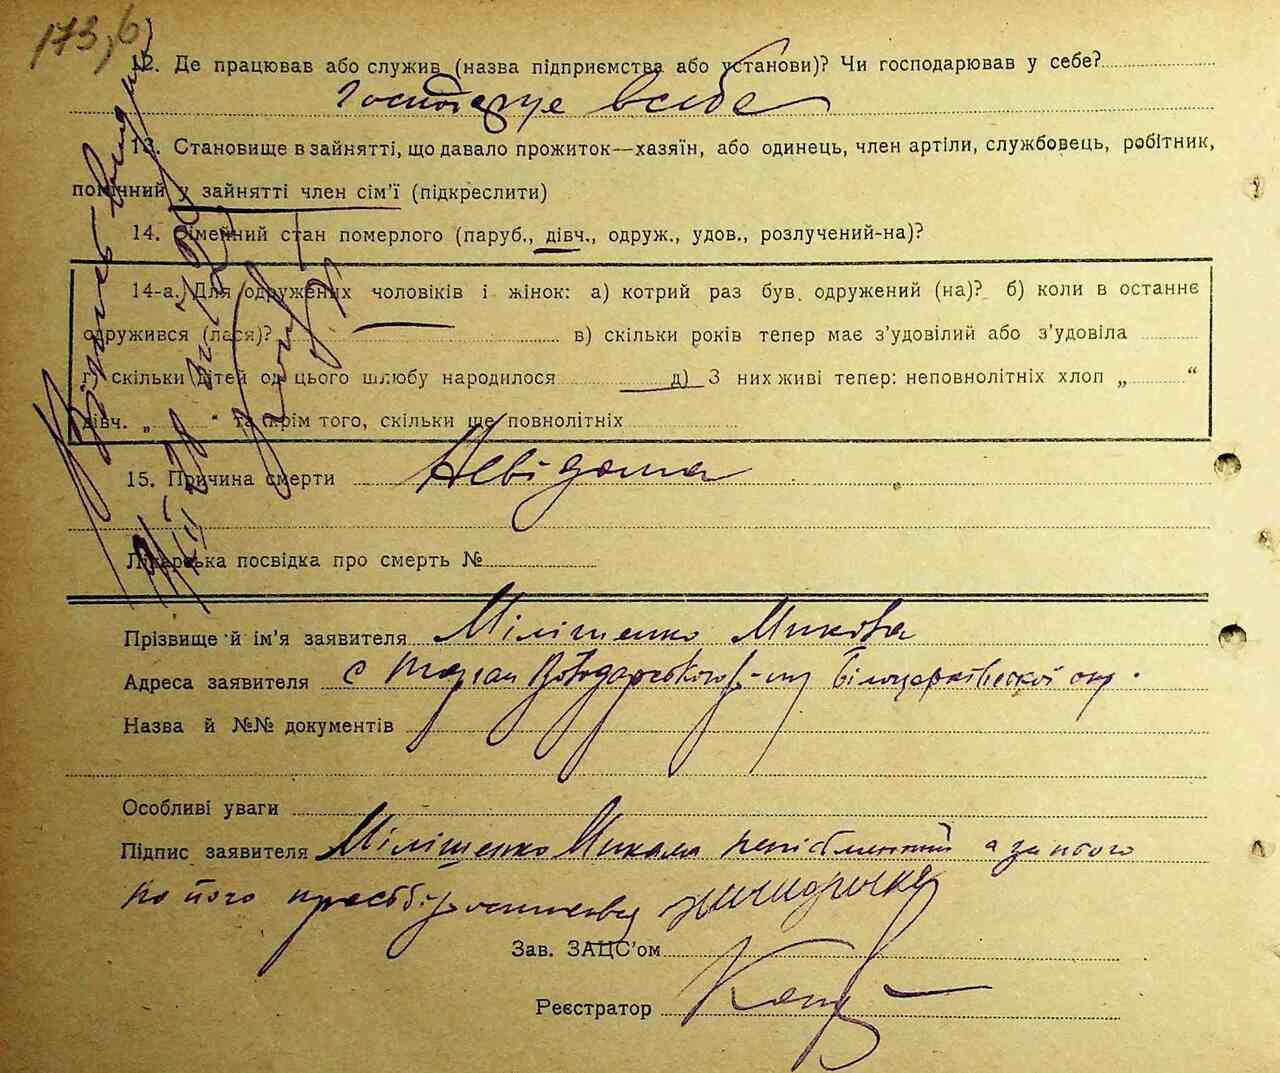 173,б
12. Де працював або служив (назва підприємства або установи)? Чи господарював у себе?
Господарує всебе
13. Становище в зайнятті, що давало прожиток—хазяїн, або одинець, член артіли, службовець, робітник,
помічний у зайнятті член сім'ї (підкреслити)
14. Сімейний стан померлого (паруб., дівч., одруж., удов., розлучений-на)?
14-а. Для одружених чоловіків і жінок: а) котрий раз був одружений (на)? б) коли в останнє
одружився (лася)? в) скільки років тепер має з'удовілий або з'удовіла
г) скільки дітей од цього шлюбу народилося д) З них живі тепер: неповнолітніх хлоп „ “
дівч. „ “ та крім того, скільки ще повнолітніх
15. Причина смерти Невідома
Лікарська посвідка про смерть №
Прізвище й ім'я заявителя Міліщенко Микола
Адреса заявителя с Володарського р-ну Білоцерківської окр.
Назва й №№ документів
Особливі уваги
Підпис заявителя Міліщенко Микола неписьменний а за нього
по його просьбі
Зав. ЗАЦС'ом
Реєстратор